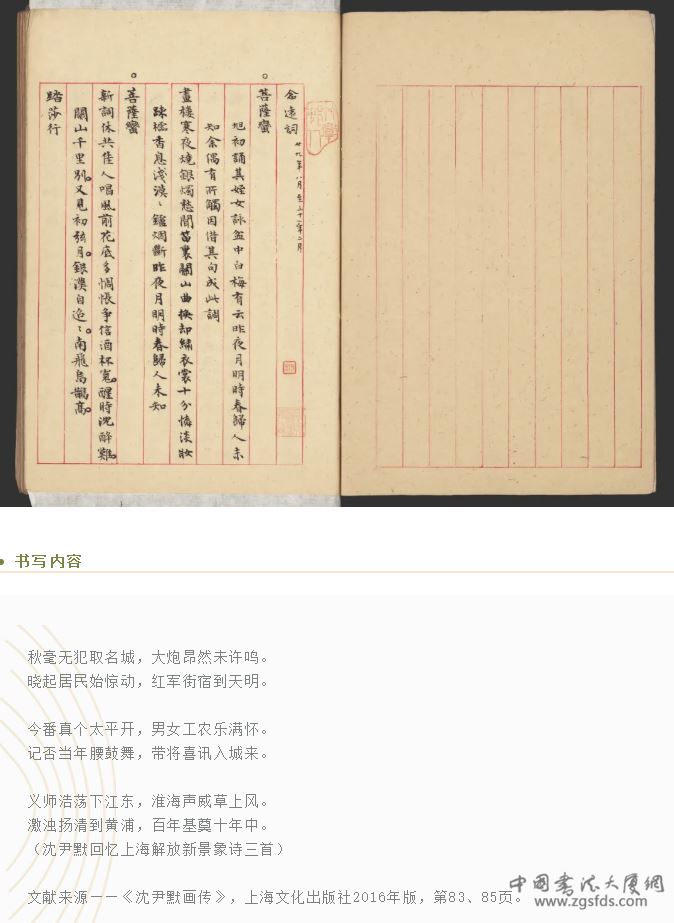 念遠詞 廿九年八月至三十一年二月
菩薩蠻
旭初誦其姪女詠盆中白梅有云昨夜月明時春歸人未
知余偶有所觸因借其句成此調
畫樓寒夜燒銀燭愁聞笛裏關山曲換却繡衣裳十分憐淡妝
踈櫺香息淺漠〻鑪烟斷昨夜月明時春歸人未知
菩薩蠻
新詞休共佳人唱風前花底多惆悵爭信酒杯寬。醒時沈醉難。
關山千里別。又見初弦月。銀漢自迢〻。南飛烏鵲高。
踏莎行
书写内容
秋毫无犯取名城，大炮昂然未许鸣。
晓起居民始惊动，红军街宿到天明。
今番真个太平开，男女工农乐满怀。
记否当年腰鼓舞，带将喜讯入城来。
义师浩荡下江东，淮海声威草上风。
激浊扬清到黄浦，百年基奠十年中。
（沈尹默回忆上海解放新景象诗三首）
文献来源——《沈尹默画传》，上海文化出版社2016年版，第83、85页。
中国书法大厦网
www.zgsfds.com